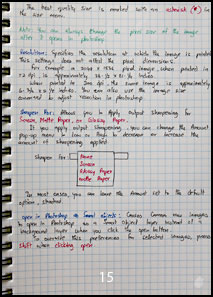 The best quality size is marked with an asterisk (*) in
the size menu.
Note: You can always change the pixel size of the image
after it opens in photoshop
Resolution: Specifies the resolution at which the image is printed
This settings does not affect the pixel dimensions.
For example a 2048 x 1536 pixel image when printed in
72 dpi is approximately 28 1/2 x 21 1/2 inches.
When printed in 300 dpi the same image is approximately
You can also use the image size
command to adjust resolution in photoshop
Sharpen For: Allows you to Apply output Sharpening for
Screen, Matte Paper, or Glossy Paper.
If you apply output sharpening, you can change the Amount
pop-up menu to low or high to decrease or increase the
amount of sharpening applied.
Sharpen For
None
Screen
Glossy Paper
Matte Paper
In most cases, you can leave the Amount set to the default
option, standard.
Open in Photoshop As Smart objects: Causes Camera raw images
to open in Photoshop as a Smart object layer instead of a
background layer when you click the open button.
To override this preferences for selected images, press
shift when clicking open.
15